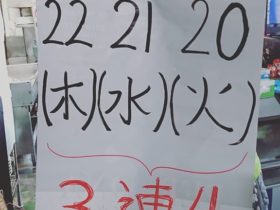 22 21 20
(木)(水)(火)
3連